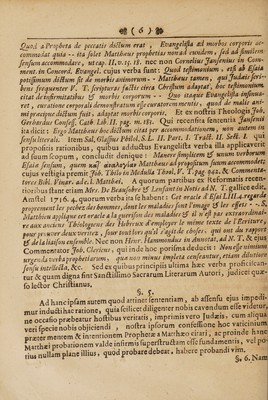 ( 6 )
Quod a Propheta de peccatis dictum erat, Evangelista ad morbos corporis ac-
commodat quia - ita solet Matthæus prophetias non ad eundem, sed ad similem
sensum accommodare, ut cap. II. v. 15. 18. nec non Cornelius Jansenius in Com-
ment. in Concord. Evangel. cujus verba sunt: Quod testimonium, etsi ab Esaia
potissimum dictum sit de morbis animorum - Matthæus tamen, qui Judaïs scri-
bens frequenter V. T. scripturas factis circa Christum adaptat, hoc testimonium
citat de infirmitatibus & morbis corporum - - Quo itaque Evangelista insinua-
ret, curatione corporali demonstratum esse curatorem mentis, quod de malis ani-
mi præcipue dictum fuit, adaptat morbis corporeis. Et ex nostris Theologis Joh.
Gerhardus Confess. Cath. Lib. II. pag. m. 181. Qui recensita sententia Jansenii
ita dicit: Ergo Matthæus hoc dictum citat per accommodationem, non autem in
sensu litterali. Item Sal. Glassius Philol. S. L. II. Part. I. Tract. II. Sect. I. qui
propositis rationibus, quibus adductus Evangelista verba illa applicaverit
ad suum scopum, concludit denique: Manere simplicem & unum verborum
Esaiæ sensum, quem Matthæus ad propositum suum accommodet;
cujus vestigia premit Joh. Tbilo in Medulla Theol. V. T. pag. 942. & Commenta-
tores Bibl. Vinar. ad l. Matthæi. A quorum partibus ex Reformatis recen-
tioribus stant etiam Mrs. De Beausobre & Lenfant in Notis ad N. T. gallice edit.
Amstel. 1718. 4. quorum verba ita se habent: Cet oracle d'Esai LIII. 4. regarde
proprement les pechez des hommes, dont les maladies sont l'image & les effets - - S.
Matthieu applique cet oracle a la guerison des maladies & il n'est pas extraordinai-
re aux anciens Theologiens des Hebreux d'employer le même texte de l'Ecriture,
pour prouver deux veritez, sur tout lors qu'il s'agit de choses, qui ont du rapport
& de la liaison ensemble. Nec non Henr. Hammondus in Annotat. ad N. T. & ejus
Commentator Joh. Clericus, qui inde hoc porisma deducit: Non esse nimium
urgenda verba prophetiarum, quæ non minus impleta censentur, etsam dilutiore
sensu intellecta, &c. Sed ex quibus principiis ultima hæc verba proficiscan-
tur & quam digna sint Sanctissimo Sacrarum Literarum Autori, judicet quæ-
so lector Christianus.
§. 5.
Ad hanc ipsam autem quod attinet sententiam, ab assensu ejus impedi-
mur inducti hac ratione, quia scilicet diligenter nobis cavendum esse videtur,
ne occasio præbeatur hostibus veritatis, imprimis vero Judæis, cum aliqua
veri specie nobis objiciendi, nostra ipsorum confessione hoc vaticinium
præter mentem & intentionem Prophetæ a Matthæo citari, ac proinde hanc
Matthæi probationem valde infirmis superstructam esse fundamentis, vel po-
tius nullam plane illius, quod probare debebat, habere probandi vim.
§. 6. Nam